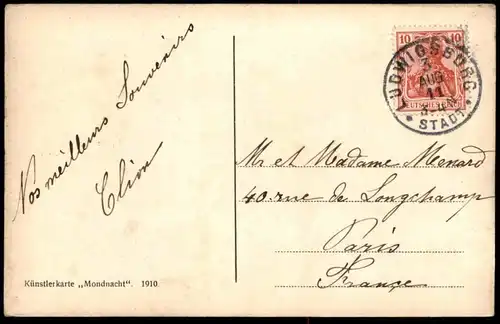 Nos meilleurs Souvenirs
Clim
Künstlerkarte „Mondnacht". 1910.
10 10
DEUTSCHES
UDWIGSBURG
3
AUG
11
3-4
* STADT *
Mr et Madame Menard
40. rue de Longchamp
Paris
France